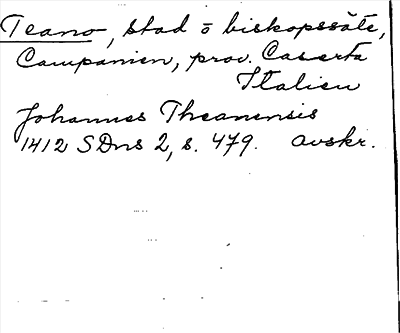 Teano, stad o biskopssäte,
Campanien, prov. Caserta
Italien
Johannes Theanensis
1412 SDns 2, s. 479. avskr.